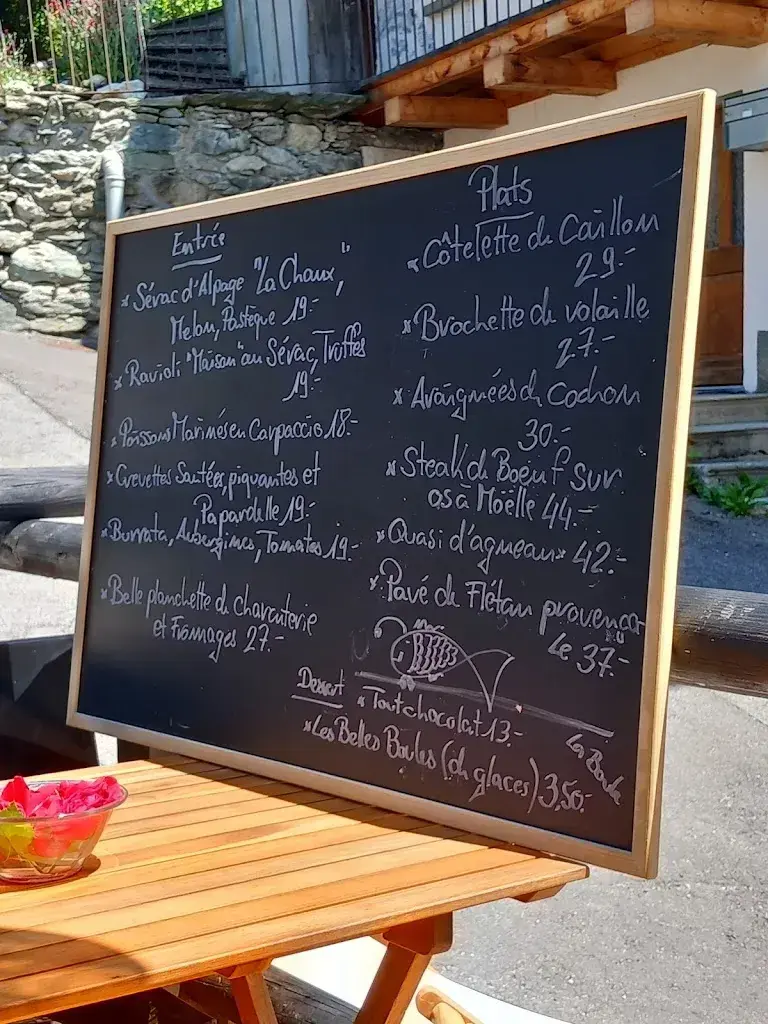 Entrée
* Sérac d'Alpage "La Chaux,"
Melon, Pastèque 19.-
* Ravioli "Maison" au Sérac, Truffes
19.-
* Poissons Marinés en Carpaccio 18.-
* Crevettes Sautées, piquantes et
Papardelle 19.-
* Burrata, Aubergines, Tomates 19.-
* Belle planchette de charcuterie
et Fromages 27.-
Plats
* Côtelette de Caïllon
29.-
* Brochette de volaille
27.-
* Araignées de Cochon
30.-
* Steak de Boeuf sur
os à Moëlle 44.-
* Quasi d'agneau * 42.-
* Pavé de Flétan provença
le 37.-
Dessert
* Tout chocolat 13.-
* Les Belles Boules (de glaces) 3,50.-
La Boule